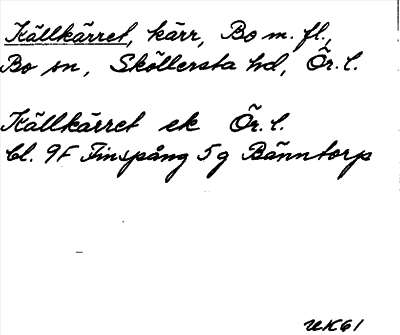 Källkärret, kärr, Bo m. fl.,
Bo sn, Sköllersta hd, Ör. l.
Källkärret ek Ör. l.
bl. 9F Finspång 5g Bänntorp
UK61